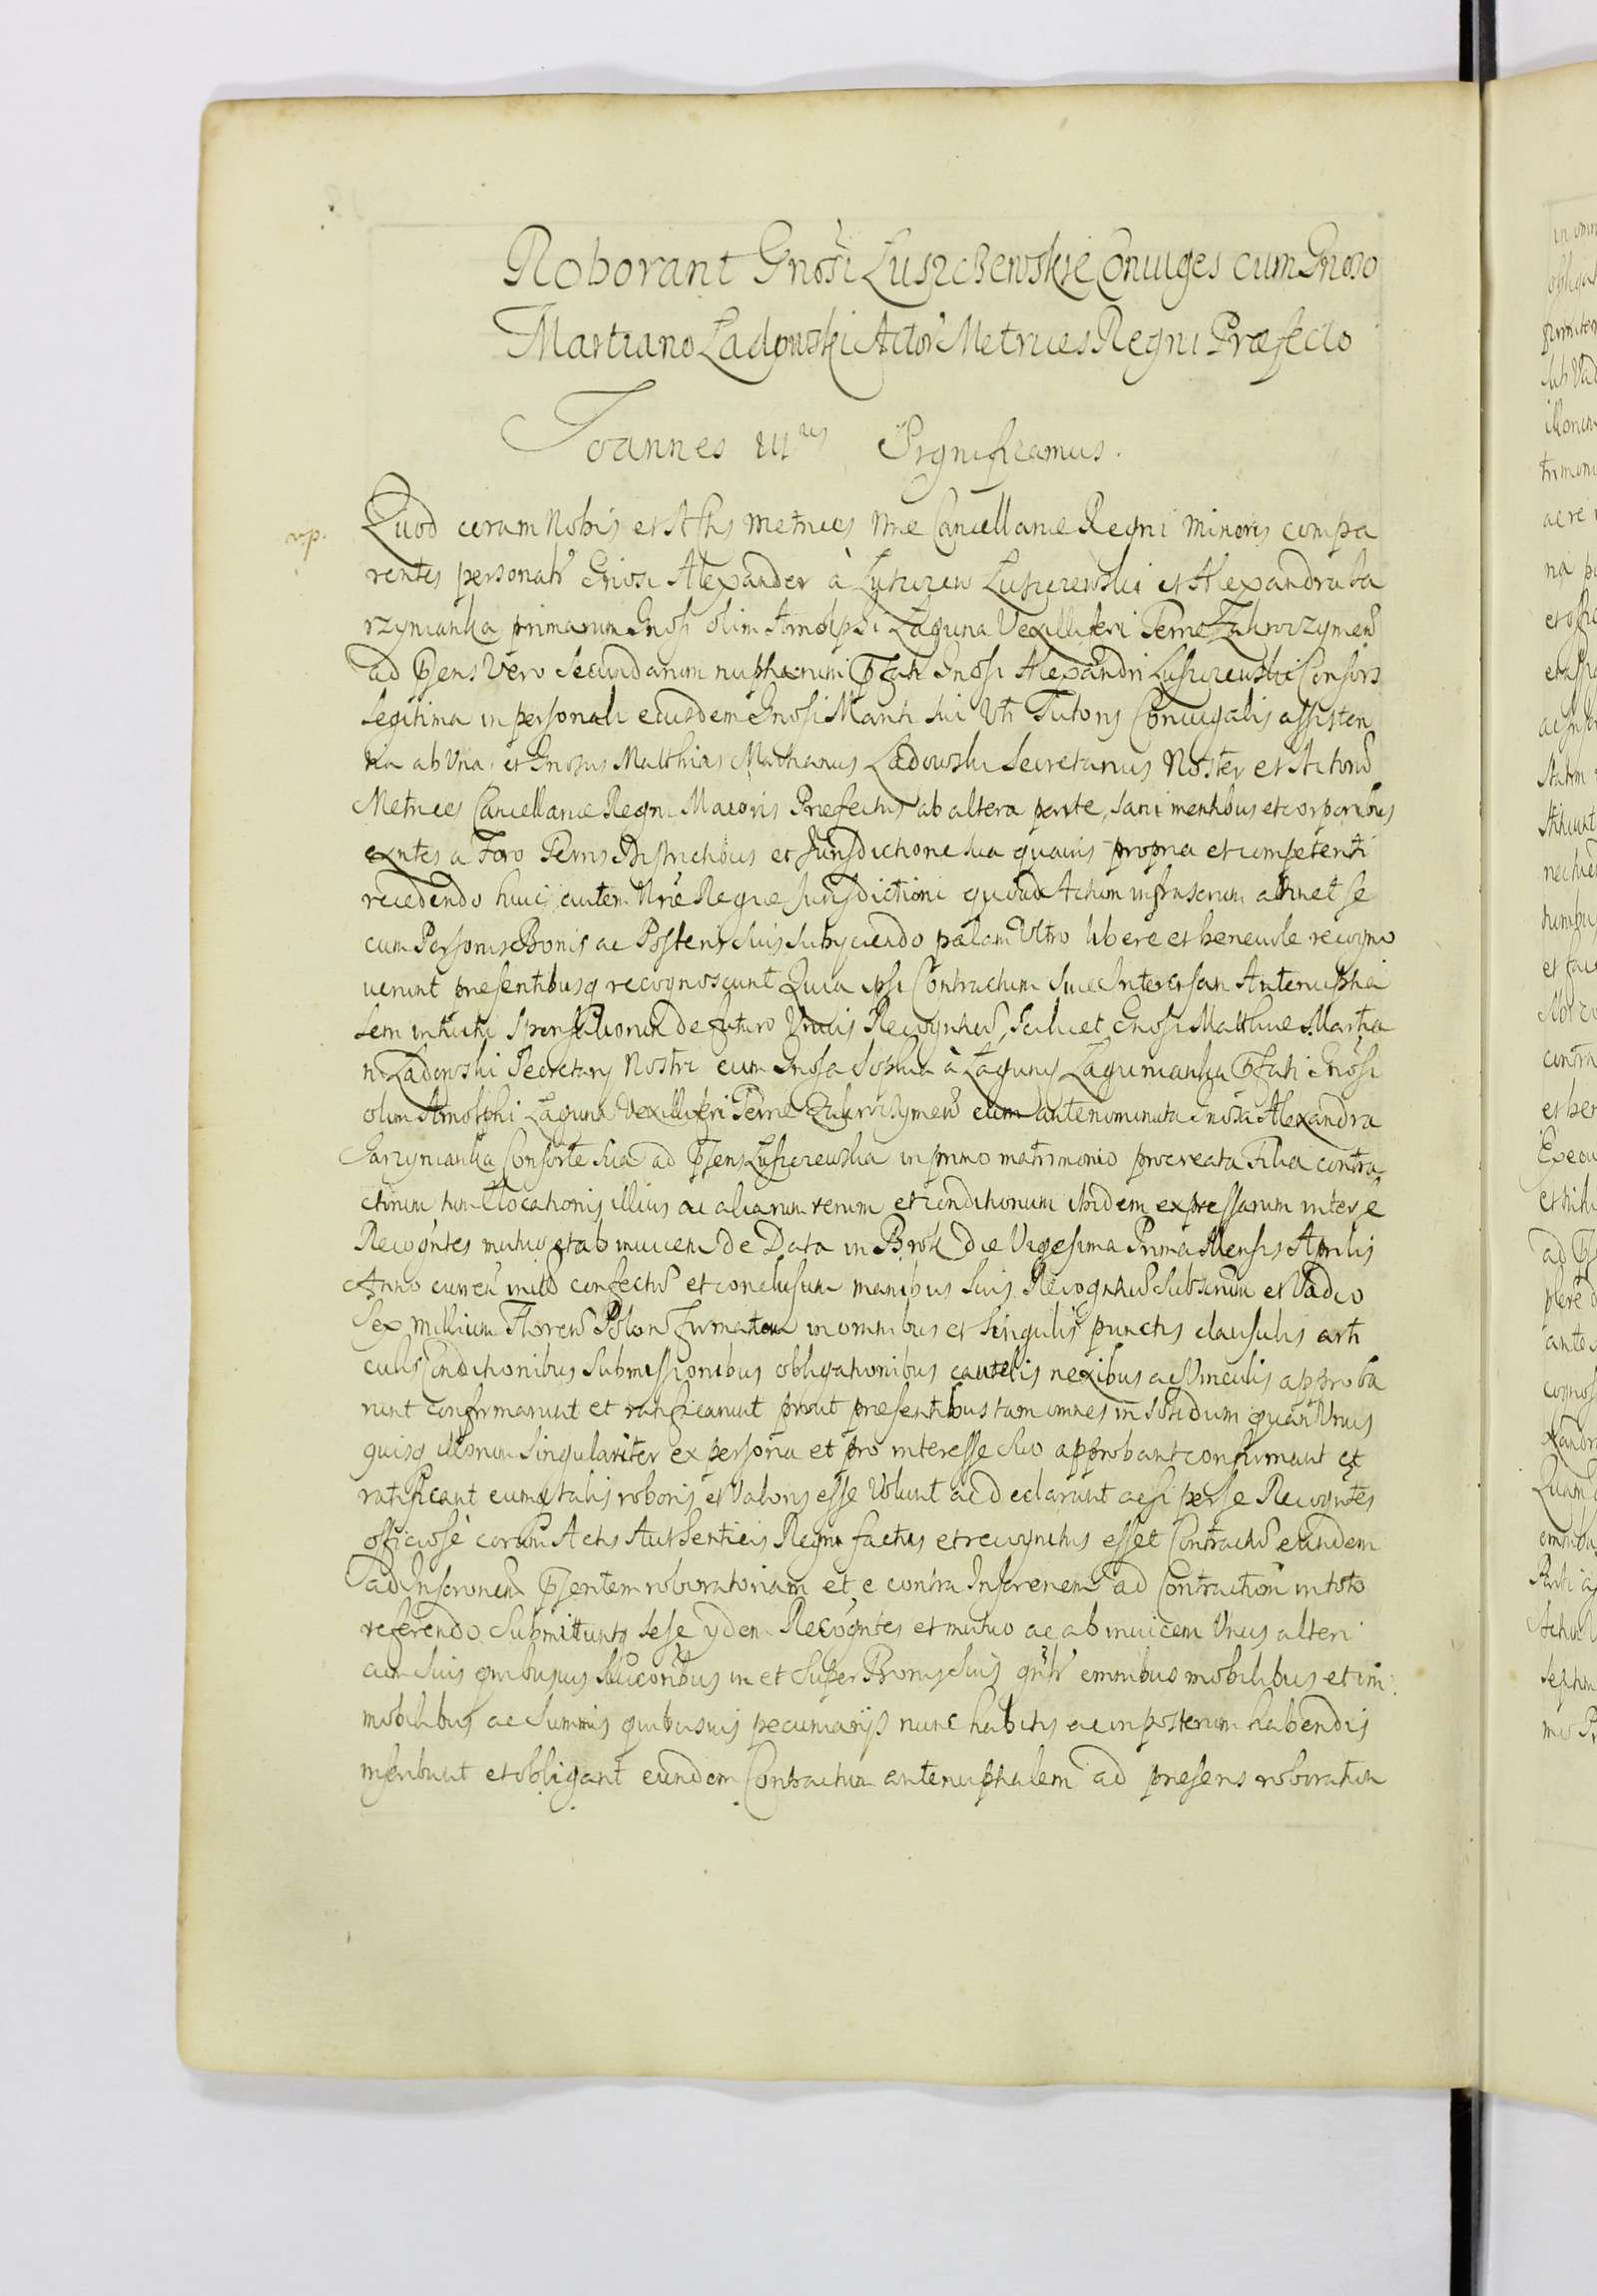 Roborant Gnosi Luszczewskie Coniuges cum Gnoso
Martiano Ladowski Actor Metrices Regni Præfecto
Joannes III us Significamus.
v.p.
Quod coram Nobis et Actis Metrices Nrae Cancellariae Regni Minoris compa
rentes personalr Gnosi Alexander à Luszczew Luszczewski et Alexandra Ga
rzynianka primarum Gnosi olim Arnolphi Laguna Vexilliferi Terrae Zakroczymen
ad Psens Vero secundarum nuptiarum Pfati Gnosi Alexandri Luszczewski Consors
legitima in personali eiusdem Gnosi Mariti sui Vti Tutoris Coniugalis assisten
tia ab Vna, et Gnosus Matthias Martianus Ladowski Secretarius Noster et Actorum
Metrices Cancellariae Regni Maioris Præfectus ab altera parte, sani mentibus et corporibus
exntes a Foro Terris Districtibus et Jurisdictione sua quauis propria et competenti
recedendo huic autem Nrae Regiae Jurisdictioni quoad Actum infrascrum attinet se
cum Personis Bonis ac Posteris suis subyciendo palam Vltro libere et beneuole recogno
uerunt presentibusq recognoscunt Quia ipsi Contractum siue Intercisam Antenuptia
lem intuitu Sponsaliorum de futuro Vnius Recognten, scilicet Gnosi Matthiae Martia
ni Ladowski Secretarij Nostri cum Gnosa Sophia à Laguny Lagunianka Pfati Gnosi
olim Arnolphi Laguna Vexilliferi Terrae Zakroczymen cum antenominata Gnosa Alexandra
Garzynianka Consorte sua ad Psens Luszczewska in primo matrimonio procreata Filia contra
ctorum tum Elocationis illius ac aliarum rerum et conditionum ibidem expressarum inter se
Recogntes mutuo et ab inuicem de Data in Brok die Vigesima Prima Mensis Aprilis
Anno curren initum confectum et conclusum manibus suis Recogntium subscrum et Vadio
Sex Millium Floren Polon firmatum in omnibus et singulis punctis clausulis arti
culis Conditionibus submissionibus obligationibus cautelis nexibus ac Vinculis approba
runt confirmarunt et ratificarunt prout presentibus tam omnes in solidum quam Vnus
quisq illorum singulariter ex persona et pro interesse suo approbant confirmant et
ratificant eumq talis roboris et Valoris esse Volunt ac declarant acsi per se Recogntes
officiosè coram Actis Authenticis Regni factus et recognitus esset Contractum eundem
ad Inscronem Psentem roboratoriam et e contra Inscronem ad Contractum in toto
referendo Submittuntq sese ydem Recogntes et mutuo ac ab inuicem Vnus alteri
cum suis quibusuis Succoribus in et super Bonis suis gnlr omnibus mobilibus et im
mobilibus ac summis quibusuis pecuniarijs nunc habitis ac in posterum habendis
inscribunt et obligant eundem Contractum antenuptialem ad presens roboratum